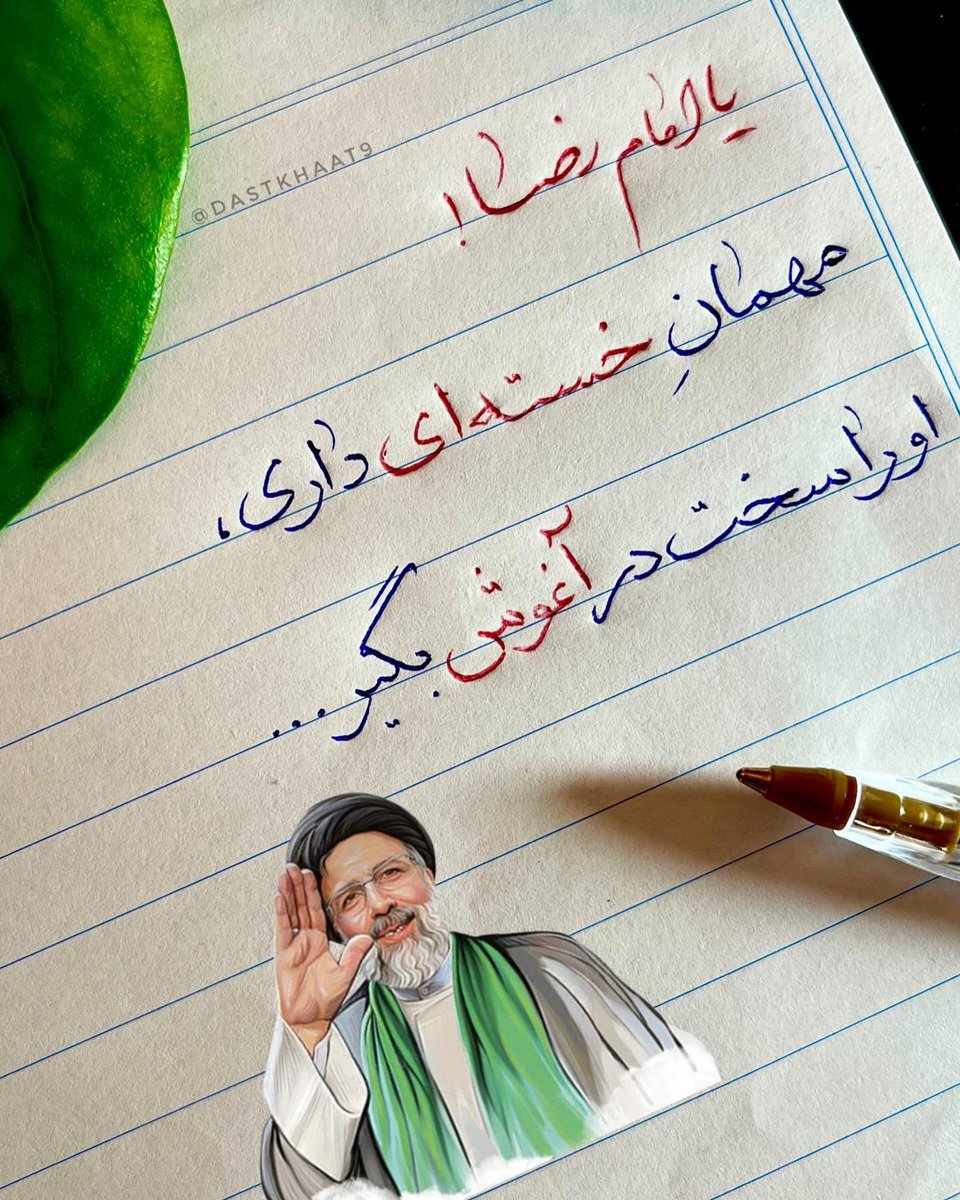 یا امام رضا!
@DASTKHAAT9
مهمانِ خسته‌ای داری،
او را سخت در آغوش بگیر...